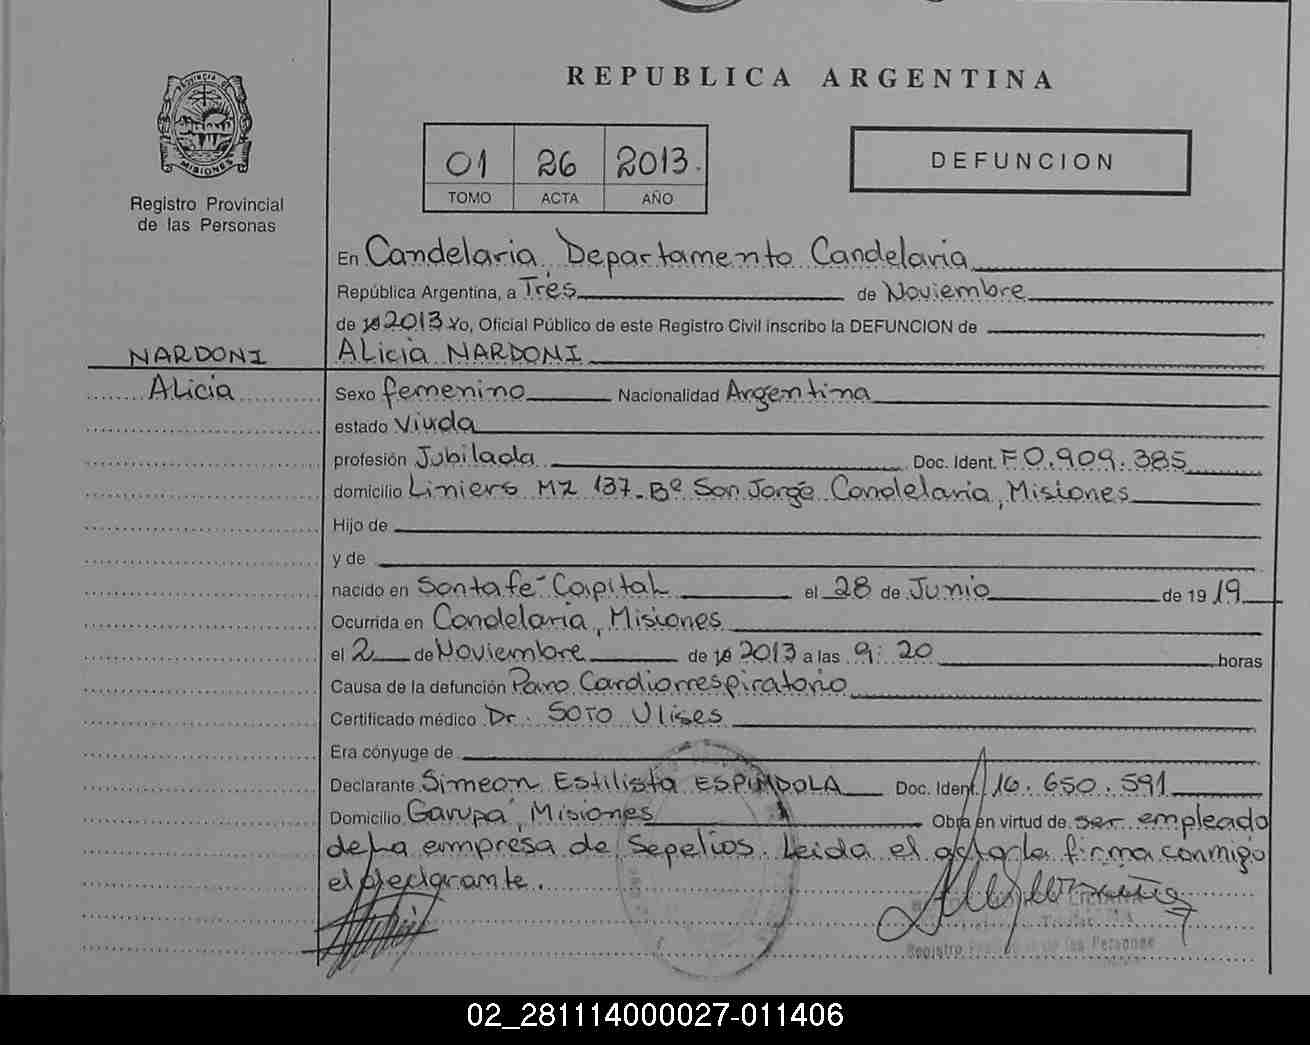 REPUBLICA ARGENTINA
PROVINCIA DE
MISIONES
Registro Provincial
de las Personas
01 26 2013.
TOMO ACTA AÑO
DEFUNCION
En Candelaria, Departamento Candelaria
República Argentina, a Tres de Noviembre
de 19 2013 Yo, Oficial Público de este Registro Civil inscribo la DEFUNCION de
NARDONI
Alicia NARDONI
Alicia
Sexo femenino Nacionalidad Argentina
estado Viuda
profesión Jubilada Doc. Ident. F 0.909.385
domicilio Liniers MZ 137-Bº San Jorge Candelaria, Misiones
Hijo de
y de
nacido en Santa fe-Capital el 28 de Junio de 19 19
Ocurrida en Candelaria, Misiones
el 2 de Noviembre de 19 2013 a las 9:20 horas
Causa de la defunción Paro Cardiorrespiratorio
Certificado médico Dr. SOTO Ulises
Era cónyuge de
Declarante Simeon Estilista ESPINDOLA Doc. Ident. 16.650.591
Domicilio Garupá, Misiones Obra en virtud de ser empleado
de La empresa de Sepelios. Leida el acta la firma conmigo
el declarante.
Registro de las Personas
02_281114000027-011406